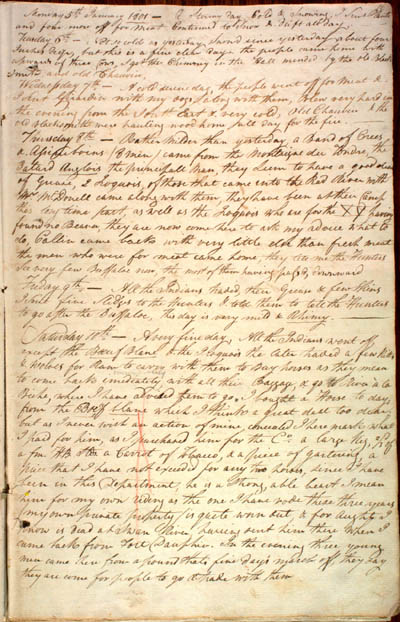 Monday 5th January 1801 — A Stormy day, Cold & Snowing,
and four more off for meat Continued to Snow & Drift all day.
Tuesday 6th — Not so cold as yesterday snowed since yesterday about four
Inches deep, but this is a fine clear day. the people came home with
upwards of three Cows, I got the Chimney in the Hall mended by the old Black
Smith, and old Chauvin
Wednesday 7th — A cold severe day, the people went off for meat &
Joint Girardin with my dogs Sating with them, Blew very hard in
the evening from the North East & very cold, Old Chauvin & the
old Jackson the men hauling wood home full day for the fire.
Thursday 8th — Rather milder than yesterday, a Band of Crees
& Assiniboins (8 men) came from the Montaigne du Foudre, the
Batard Anglois the principall Man, they seem to have a good deal
of Grease, 2 Iroquois, of those that came into the Red River with
Mr. McDonell came along with them, they have been at their Camp
this long time past, as well as the Iroquois who are for the X Y having
found no Beaver, they are now come here to ask my advice what to
do, Collin came back with very little else than fresh meat
the men who were for meat came home, they tell me the Hunters
see very few Buffaloe now, the most of them having pass'd downward
Friday 9th — All the Indians traded, their Grease & few Skins
I Sent five Sledges to the Hunters & told them to tell the Hunters
to go after the Buffaloe, this day is very mild &
Saturday 10th — A very fine day, All the Indians went off
except the Boeuf Blanc & the Iroquois the later traded a few Kettles
& Robes for Rum to carry with them to buy horses as they mean
to come back imediately with all their Baggage, & go to Rivi a la
Biche, where I have advised them to go, I bought a Horse to day
from the Boeuf blanc which I think a great dall too dear,
but as I never wish an action of mine concealed I here mark what
I had for him, as I purchased him for the Co. a large Keg, ¾ of
a fm HB Stro a Carrot of Tobacco, & a piece of gartering, a
price that I have not exceeded for any two horses, since I have
been in this Department, he is a Strong able beast I mean
him for my own riding as the one I have rode these three years
(my own private property) is quite worn out, & for aught I
know is dead at Swan River, having sent him there when I
came back from Fort Dauphin. In the evening three young
men came here from a pound that's five days march off, they say
they are come for people to go & trade with them